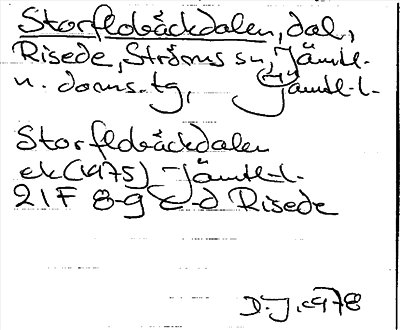 Storflobäckdalen, dal,
Risede, Ströms sn, Jämtl.
n. doms.tg, Jämtl.l.
Storflobäckdalen
ek(1975) Jämtl.l.
21F 8-g c-d Risede
D.J. 1978